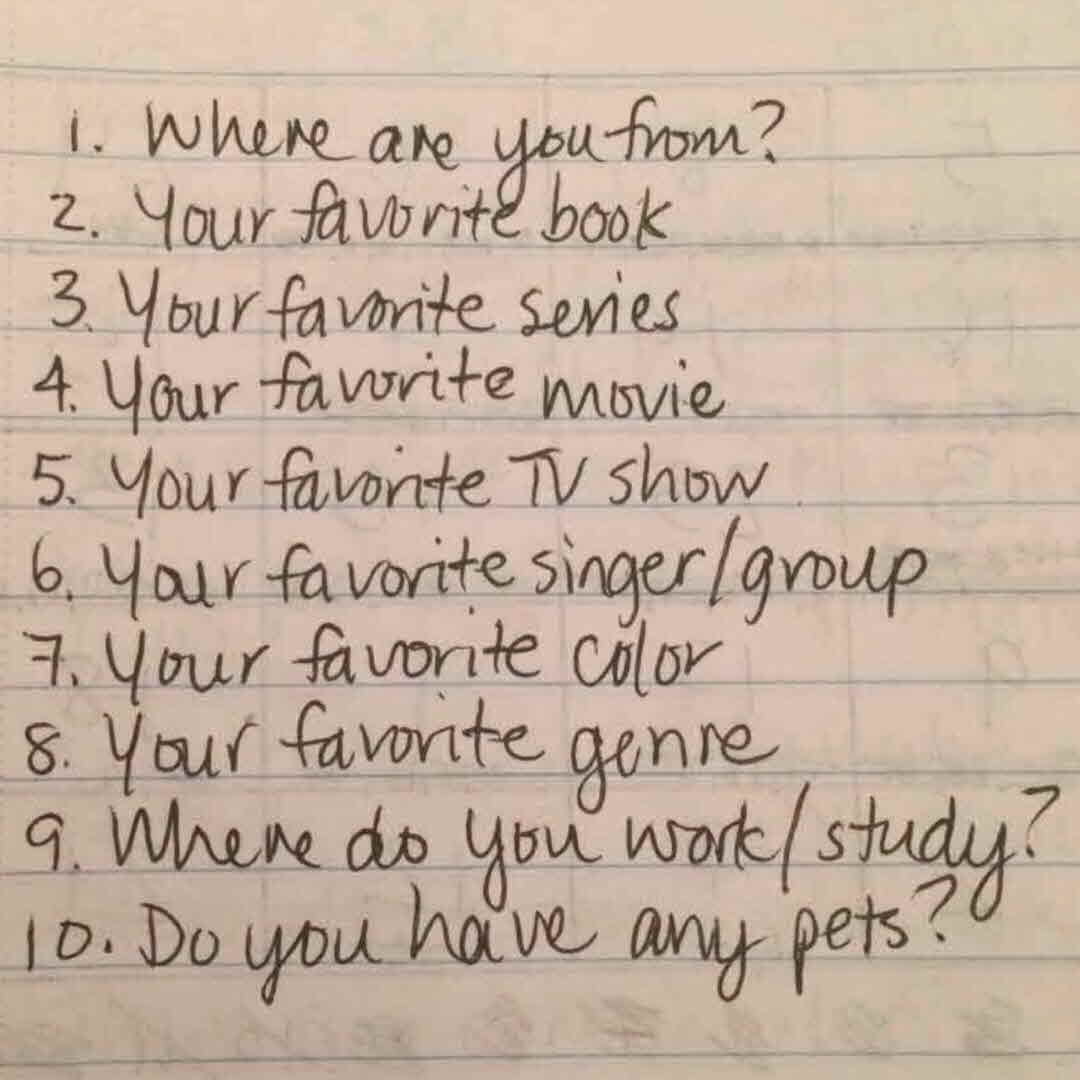 1. Where are you from?
2. Your favorite book
3. Your favorite series
4. Your favorite movie
5. Your favorite TV show
6. Your favorite singer/group
7. Your favorite color
8. Your favorite genre
9. Where do you work/study?
10. Do you have any pets?